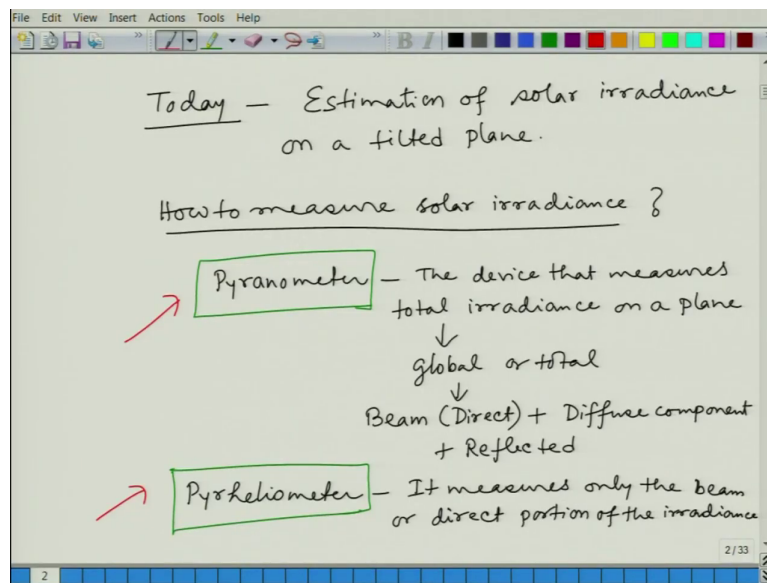 File Edit View Insert Actions Tools Help
B I
Today — Estimation of solar irradiance
on a tilted plane.
How to measure solar irradiance ?
Pyranometer — The device that measures
total irradiance on a plane
↓
global or total
↓
Beam (Direct) + Diffuse component
+ Reflected
Pyrheliometer — It measures only the beam
or direct portion of the irradiance
2/33
2